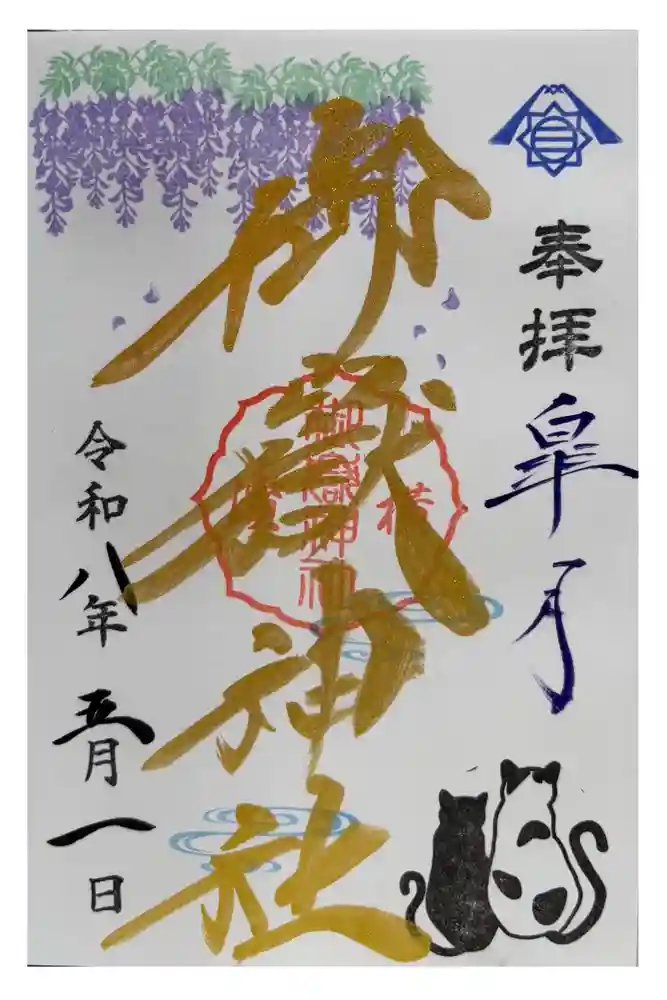 奉拝
皐月
御嶽神社
横
御嶽神社
令和八年五月一日